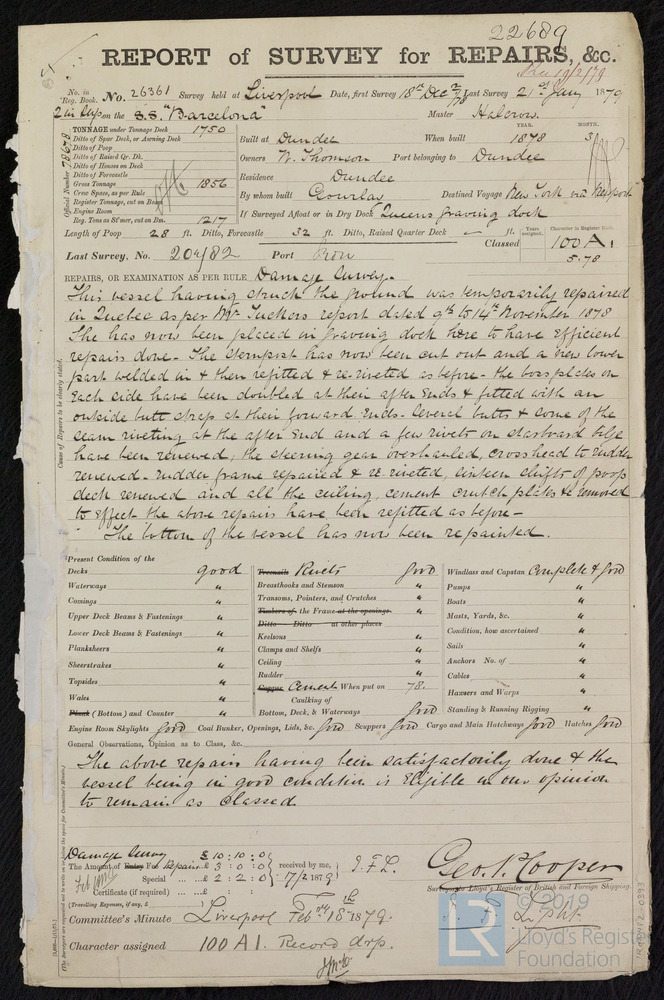 22689
REPORT of SURVEY for REPAIRS, &c.
No. in Reg. Book. No. 26361 Survey held at Liverpool Date, first Survey 18th Dec 78 Last Survey 21st Jany 1879
on the S.S. "Barcelona" Master Halcrow.
TONNAGE under Tonnage Deck 1750
YEAR. MONTH.
Ditto of Spar Deck, or Awning Deck
Ditto of Poop
Built at Dundee When built 1878 3
Ditto of Raised Qr. Dk.
Ditto of Houses on Deck
Owners W. Thomson Port belonging to Dundee
Ditto of Forecastle
Residence Dundee
Gross Tonnage 1856
Crew Space, as per Rule
By whom built Gourlay Destined Voyage New York via Newport
Register Tonnage, cut on Beam
Engine Room
If Surveyed Afloat or in Dry Dock Queens graving dock
Reg. Tons as St'mer, cut on Bm. 1217
Official Number 78678
Length of Poop 28 ft. Ditto, Forecastle 32 ft. Ditto, Raised Quarter Deck - ft.
Years assigned. Character in Register Book.
Classed 100 A1
5.78
Last Survey, No. 204/82 Port Iron
REPAIRS, OR EXAMINATION AS PER RULE Damage Survey.
This vessel having struck the ground was temporarily repaired
in Quebec as per Mr Tuckers report dated 9th to 14th November 1878
She has now been placed in graving dock here to have efficient
repairs done - The Sternpost has now been cut out and a new lower
part welded in & then refitted & re-riveted as before - the boss plates on
each side have been doubled at their after ends & fitted with an
outside butt strap at their forward ends - Several butts & some of the
seam riveting at the after end and a few rivets on starboard bilge
have been renewed, the steering gear overhauled, crosshead to rudder
renewed - rudder frame repaired & re-riveted, sixteen shifts of poop
deck renewed and all the ceiling, cement crutch plates &c removed
to effect the above repairs have been refitted as before -
The bottom of the vessel has now been repainted.
Cause of Repairs to be clearly stated.
Present Condition of the
Decks good
Waterways "
Comings "
Upper Deck Beams & Fastenings "
Lower Deck Beams & Fastenings "
Planksheers "
Sheerstrakes "
Topsides "
Wales "
Plank (Bottom) and Counter "
Treenails Rivets good
Breasthooks and Stemson "
Transoms, Pointers, and Crutches "
Timbers of the Frame at the openings "
Ditto Ditto at other places
Keelsons "
Clamps and Shelfs "
Ceiling "
Rudder "
Copper Cement When put on 78.
Caulking of
Bottom, Deck, & Waterways good
Windlass and Capstan Complete & good
Pumps "
Boats "
Masts, Yards, &c. "
Condition, how ascertained "
Sails "
Anchors No. of "
Cables "
Hawsers and Warps "
Standing & Running Rigging "
Engine Room Skylights good Coal Bunker, Openings, Lids, &c. good Scuppers good Cargo and Main Hatchways good Hatches good
General Observations, Opinion as to Class, &c.
The above repairs having been satisfactorily done & the
vessel being in good condition is Eligible in our opinion
to remain as Classed
Damage Survey £ 10 : 10 : 0
The Amount of Entry Fee Repairs £ 3 : 0 : 0 received by me, J.F.L.
Special ... £ 2 : 2 : 0 17/2 1879
Certificate (if required) ... £ : :
(Travelling Expenses, if any, £ )
Geo. P. Cooper
Surveyor to Lloyd's Register of British and Foreign Shipping.
J. F. Light
Committee's Minute Liverpool Feb 18th 1879.
Character assigned 100 A1. Record drp.
LR
© 2019
Lloyd's Register
Foundation